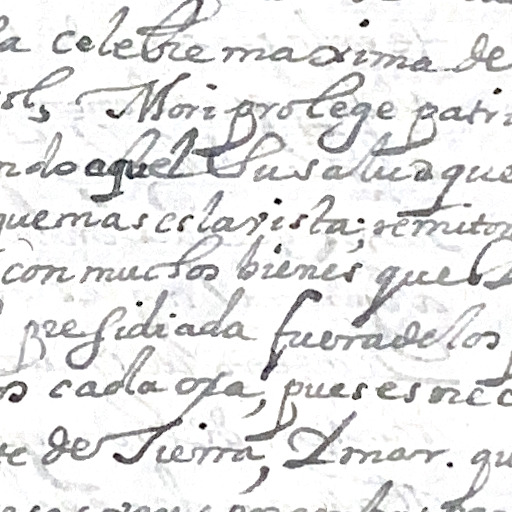 la celebre maxima de
Mori pro lege patri
ndo aquel Su salud que
que mas es la vista; remito
con muchos bienes que
presidiada fuera de los
os cada oja, pues es nec
te de Tierra, Y mar. qu